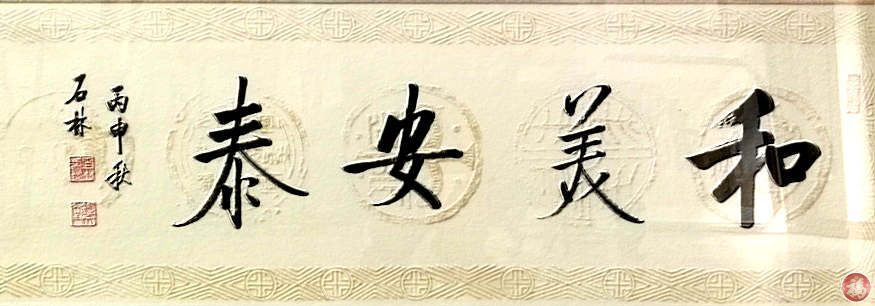 和美安泰
丙申秋
石林